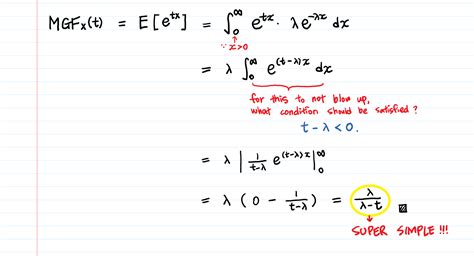 MGFₓ(t) = E[e^{tx}] = ∫₀^∞ e^{tx} · λe^{-λx} dx
∵ x>0
= λ ∫₀^∞ e^{(t-λ)x} dx
for this to not blow up,
what condition should be satisfied?
t - λ < 0.
= λ | 1/(t-λ) e^{(t-λ)x} |₀^∞
= λ ( 0 - 1/(t-λ) ) = λ/(λ-t)
SUPER SIMPLE !!!